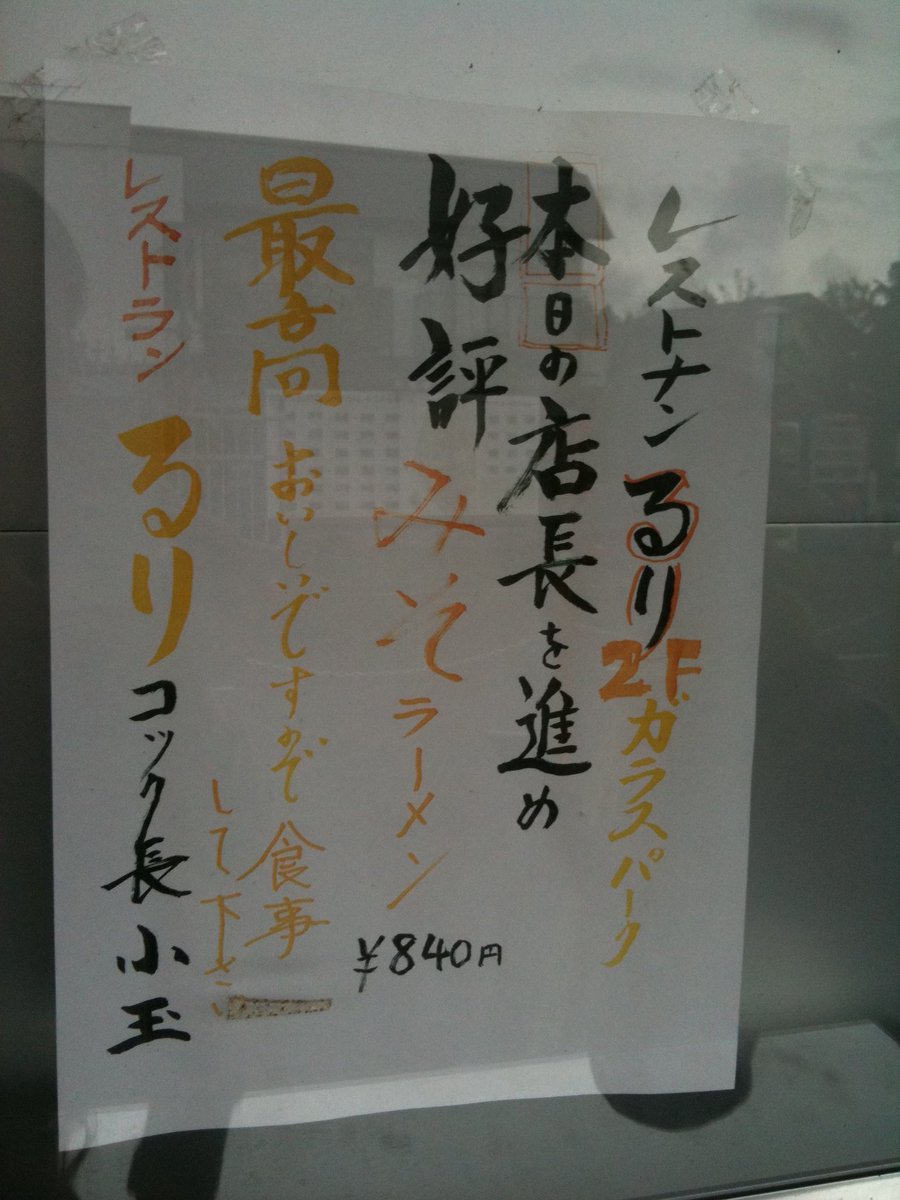 レストナンるり2Fガラスパーク
本日の店長を進め
好評みそラーメン
¥840円
最高おいしいですので食事
して下さい
レストランるりコック長小玉